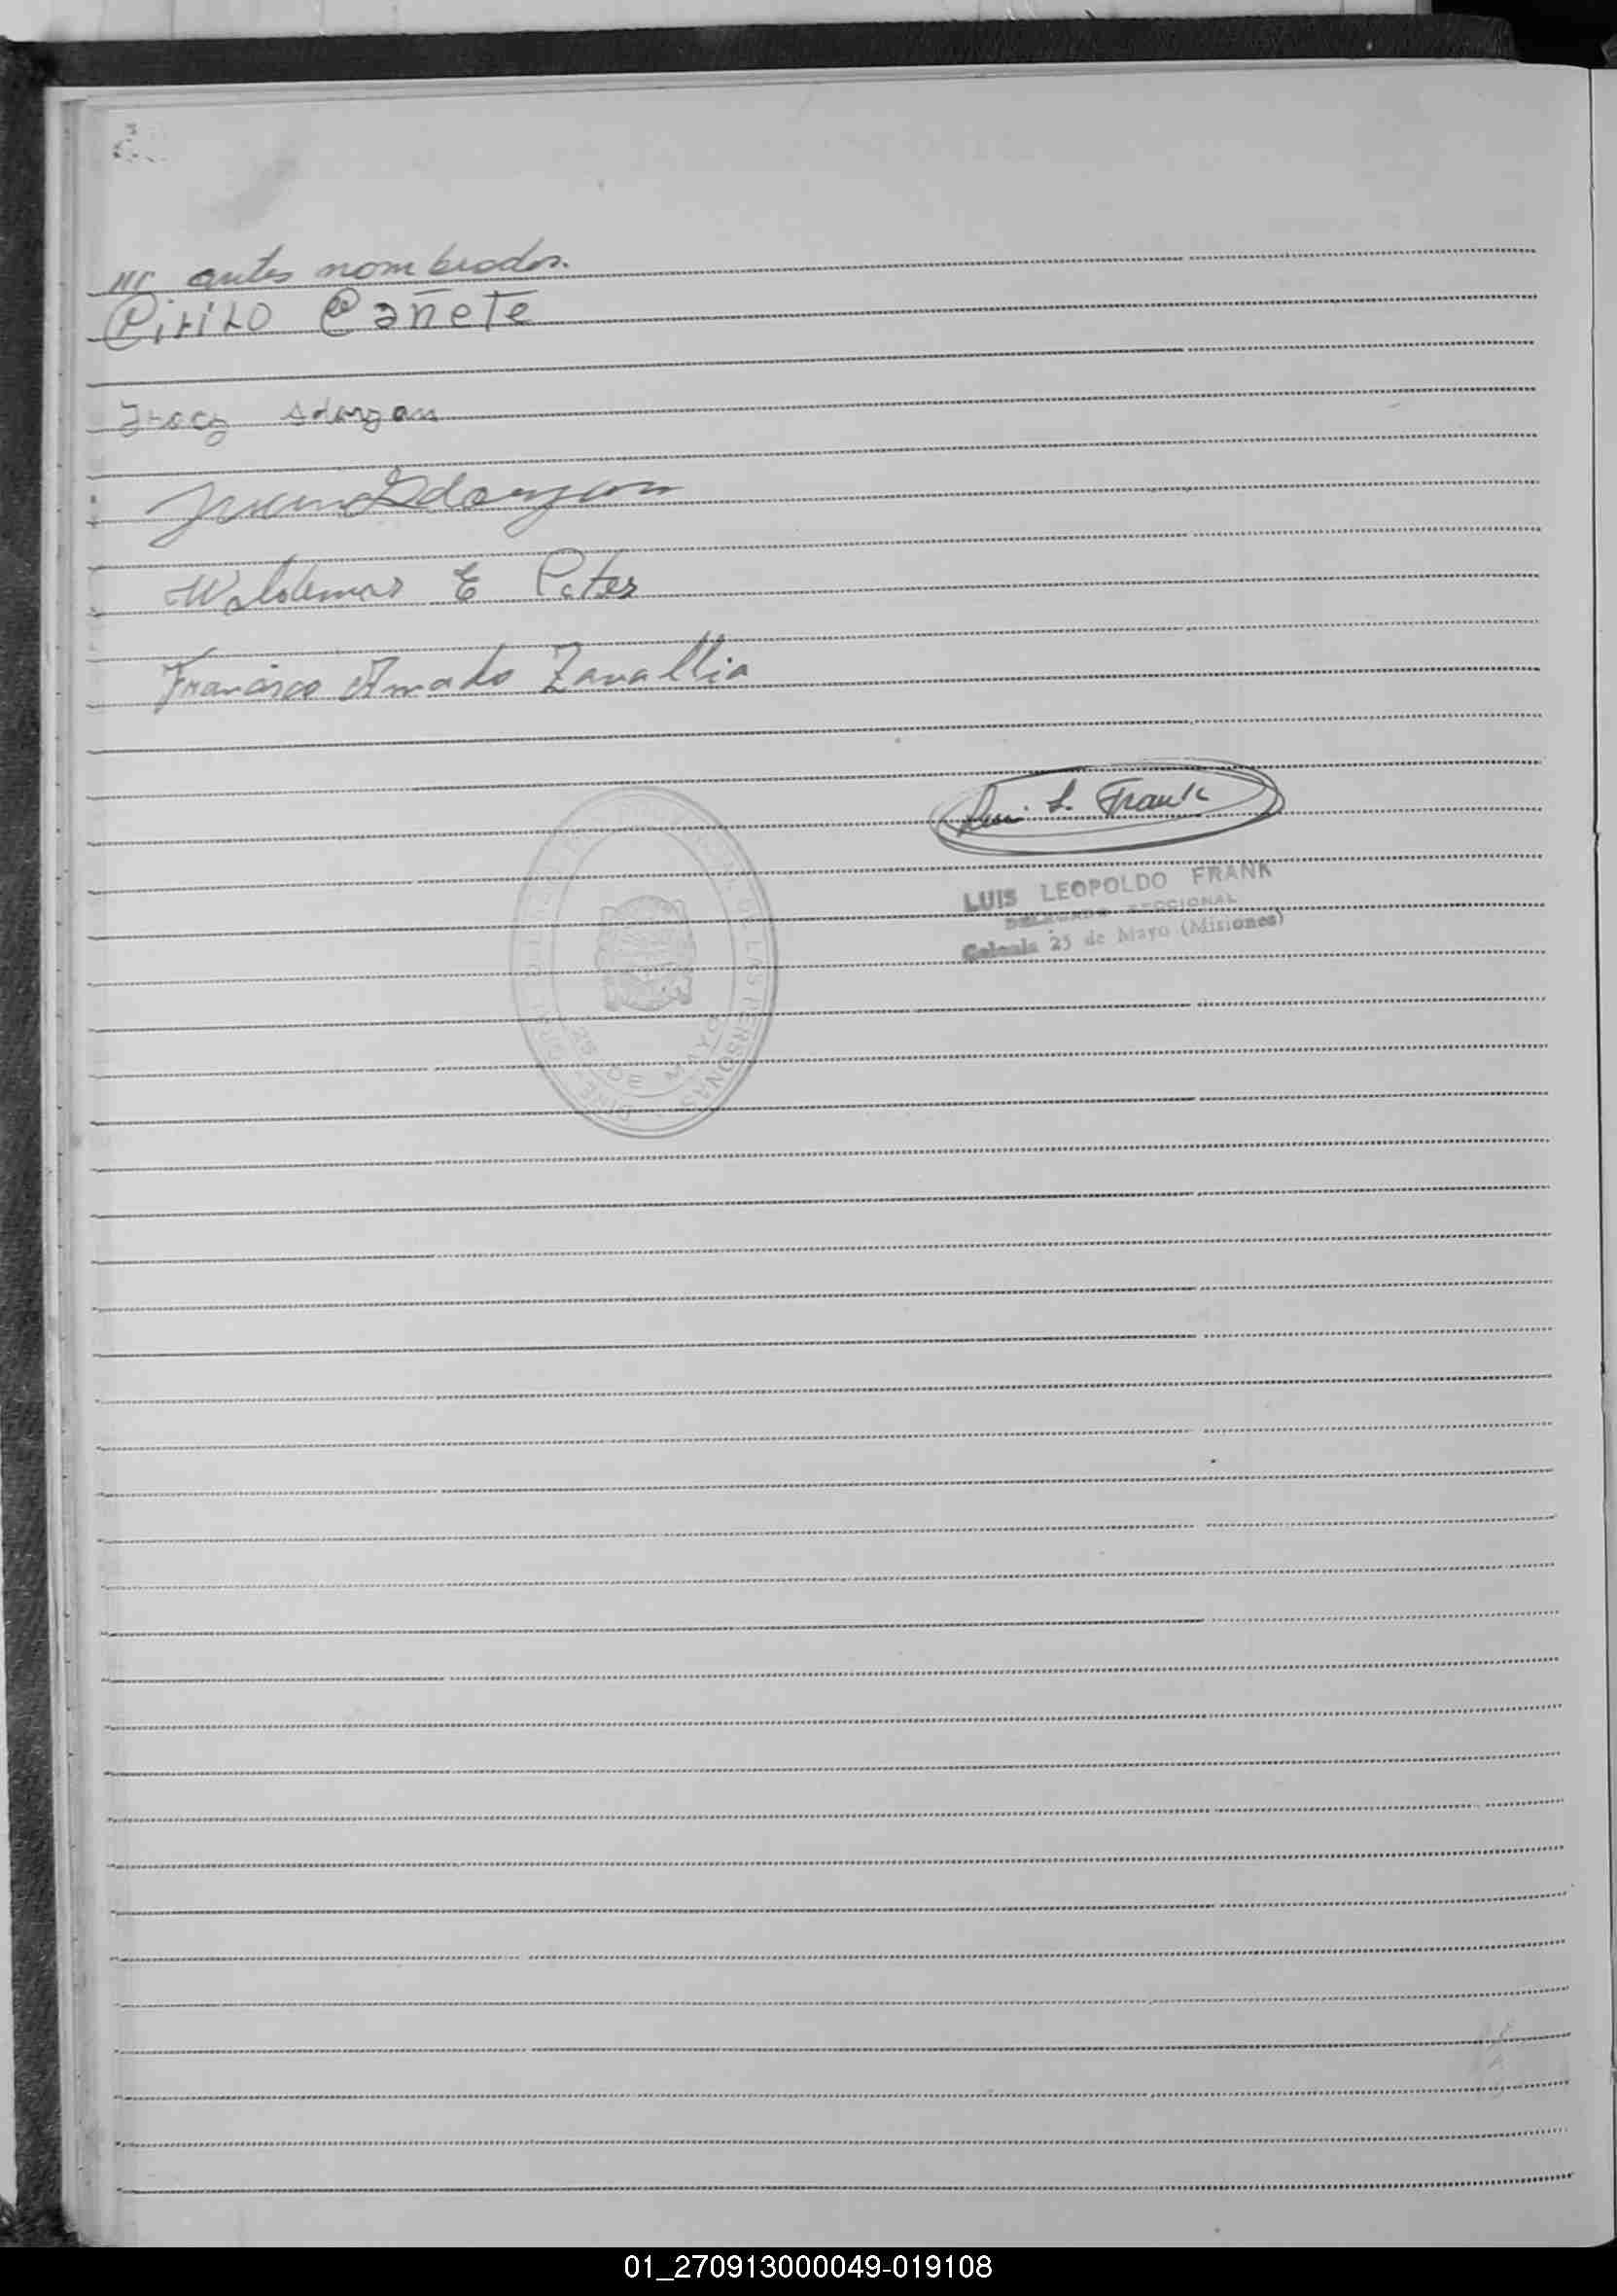 /// antes nombrados.
Cirilo Cañete
Waldemar E Peter
Francisco Amado Zavallia
Luis L. Frank
LUIS LEOPOLDO FRANK
DELEGADO SECCIONAL
Colonia 25 de Mayo (Misiones)
DE LAS PERSONAS
25 DE MAYO
01_270913000049-019108